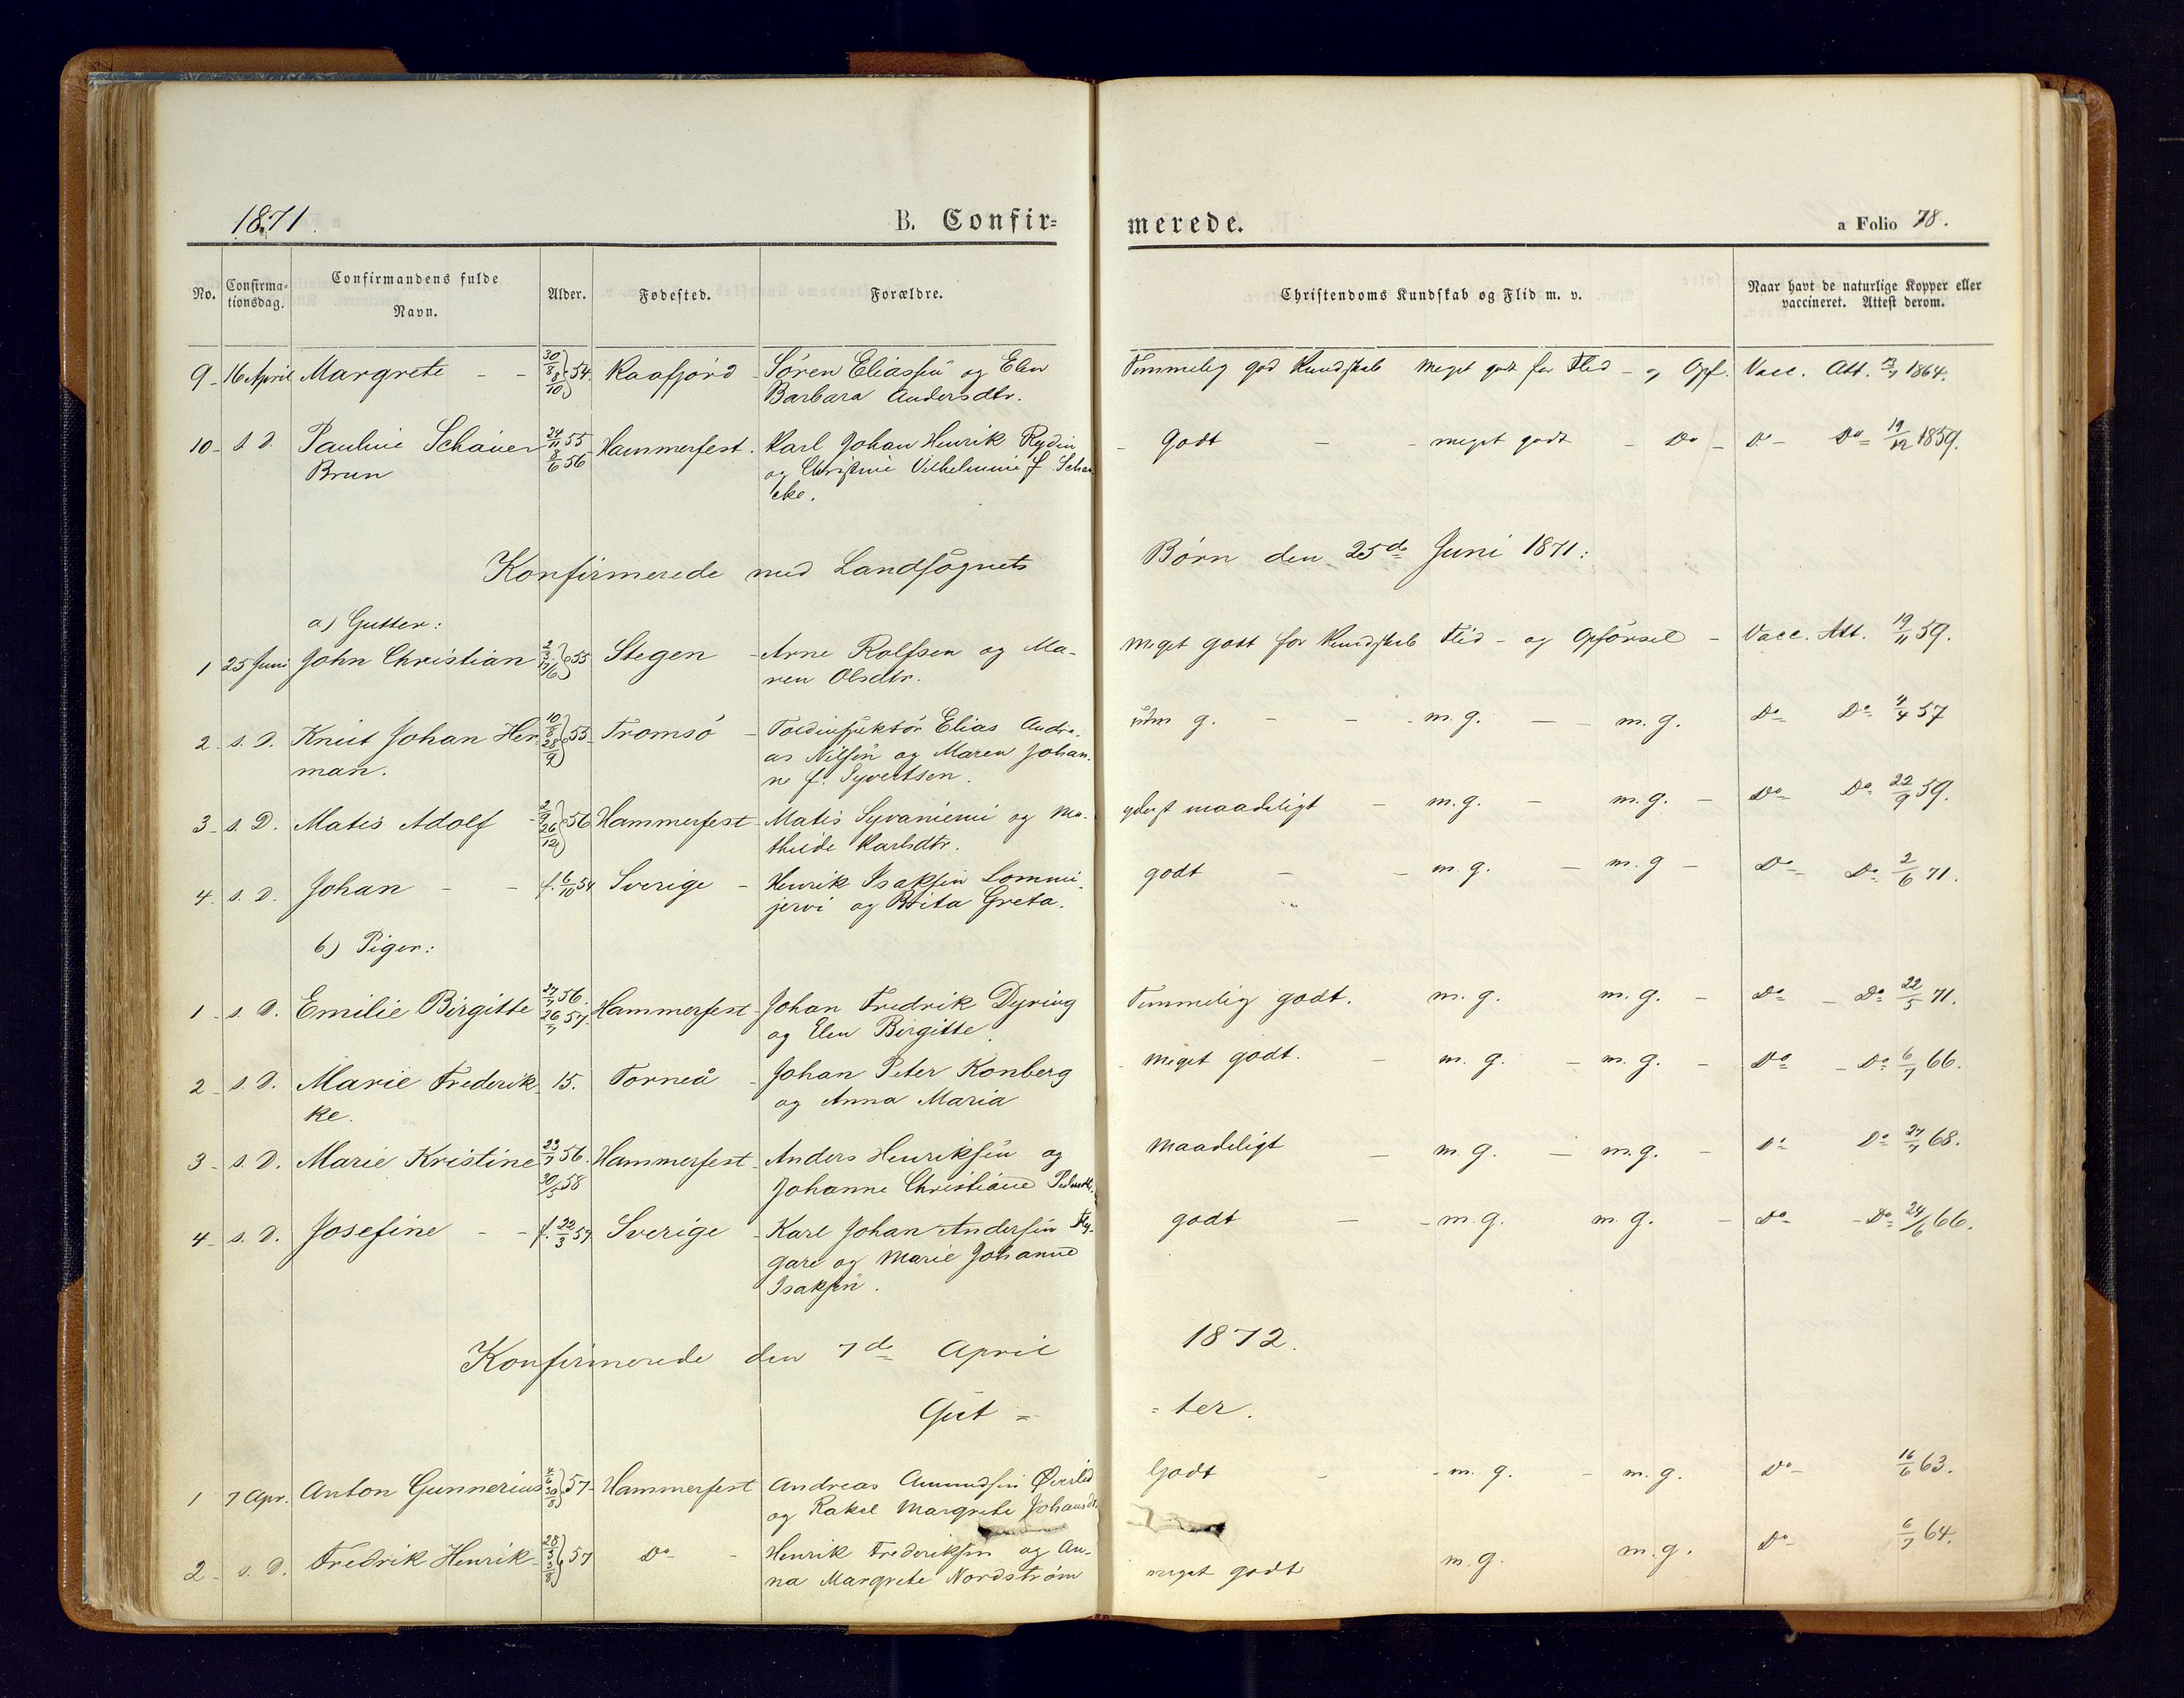 1871.
B. Confir=
merede.
a Folio 78.
No.
Confirma-
tionsdag.
Confirmandens fulde
Navn.
Alder.
Fødested.
Forældre.
Christendoms Kundskab og Flid m. v.
Naar havt de naturlige Kopper eller
vaccineret. Attest derom.
9 - 16 April Margrete - - 30/8 8/10 54. Kaafjord - Søren Eliassen og Elen
Barbara Andersdtr.
Temmelig god Kundskab meget godt for Flid - og Opf. Vacc. Att. 1864.
10 - s. D. Pauline Schauer 24/11 55 Hammerfest. Karl Johan Henrik Rydin
Brun 8/6 56 og Christine Vilhelmine f. Schan
cke.
- Godt - - meget godt - Do - Do - Do 19/12 1859.
Konfirmerede med Landsognets
Børn den 25de Juni 1871:
a) Gutter:
1 25 Juni John Christian 2/3 11/6 55 Stegen - Arne Rolfsen og Ma-
ren Olsdtr.
meget godt for Kundskab Flid - og Opførsel - Vacc. Att. 19/11 59.
2 - s. D. Knut Johan Her- 10/8 28/9 55 - Tromsö - Toldinspektör Elias Andre-
man. as Nilsen og Maren Johan-
ne f. Syvertsen.
udm g. - - - m. g. - - m. g. Do Do 4/4 57
3 - s. D. Matis Adolf - 2/9 26/12 56 Hammerfest - Matis Syvaniemi og Ma-
thilde Karlsdtr.
yderst maadeligt - m. g. - m. g. - Do Do 22/9 59.
4 - s. D. Johan - - f. 6/10 54 Sverige - Henrik Isaksen Lommi-
jervi og Brita Greta.
godt - - m. g. - m. g - Do Do 2/6 71.
b) Piger:
1 - s. D. Emilie Birgitte 27/7 56. Hammerfest - Johan Fredrik Dyring
26/7 57. og Elen Birgitte.
Temmelig godt. m. g. m. g. - Do - Do 22/5 71.
2 - s. D. Marie Frederik- 15. Torneå - Johan Peter Konberg
ke. og Anna Maria
- meget godt. - m. g. - m. g. - Do - Do 6/7 66.
3 - s. D. Marie Kristine 23/7 56. Hammerfest - Anders Henriksen og
20/5 58 Johanne Christiane Pedersdtr.
maadeligt - m. g. - m. g. - Do Do 27/7 68.
4 - s. D. Josefine - - f. 22/3 57 Sverige - Karl Johan Andersen Fly-
gare og Marie Johanne
Isaksen.
godt - - m. g. m. g. - Do - Do 24/6 66.
Konfirmerede den 7de April
1872.
Gut =
= ter.
1 7 Apr. Anton Gunnerius 4/6 30/8 57 - Hammerfest Andreas Amundsen Øverlid
og Rakel Margrete Johansdtr.
Godt - - m. g. - m. g. Do - 16/6 63.
2 - s. D. Fredrik Henrik - 57 Do - Henrik Frederiksen og An-
na Margrete Nordstrøm
meget godt m. g. m. g. Do - 6/7 64.